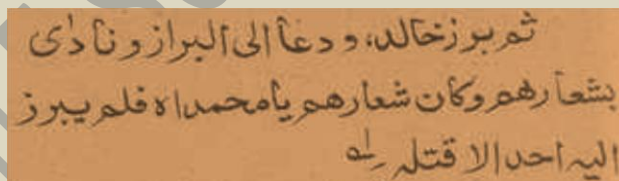 ثم برز خالد، و دعا الى البراز و نادى
بشعارهم وكان شعارهم يا محمداه فلم يبرز
اليه احد الا قتله